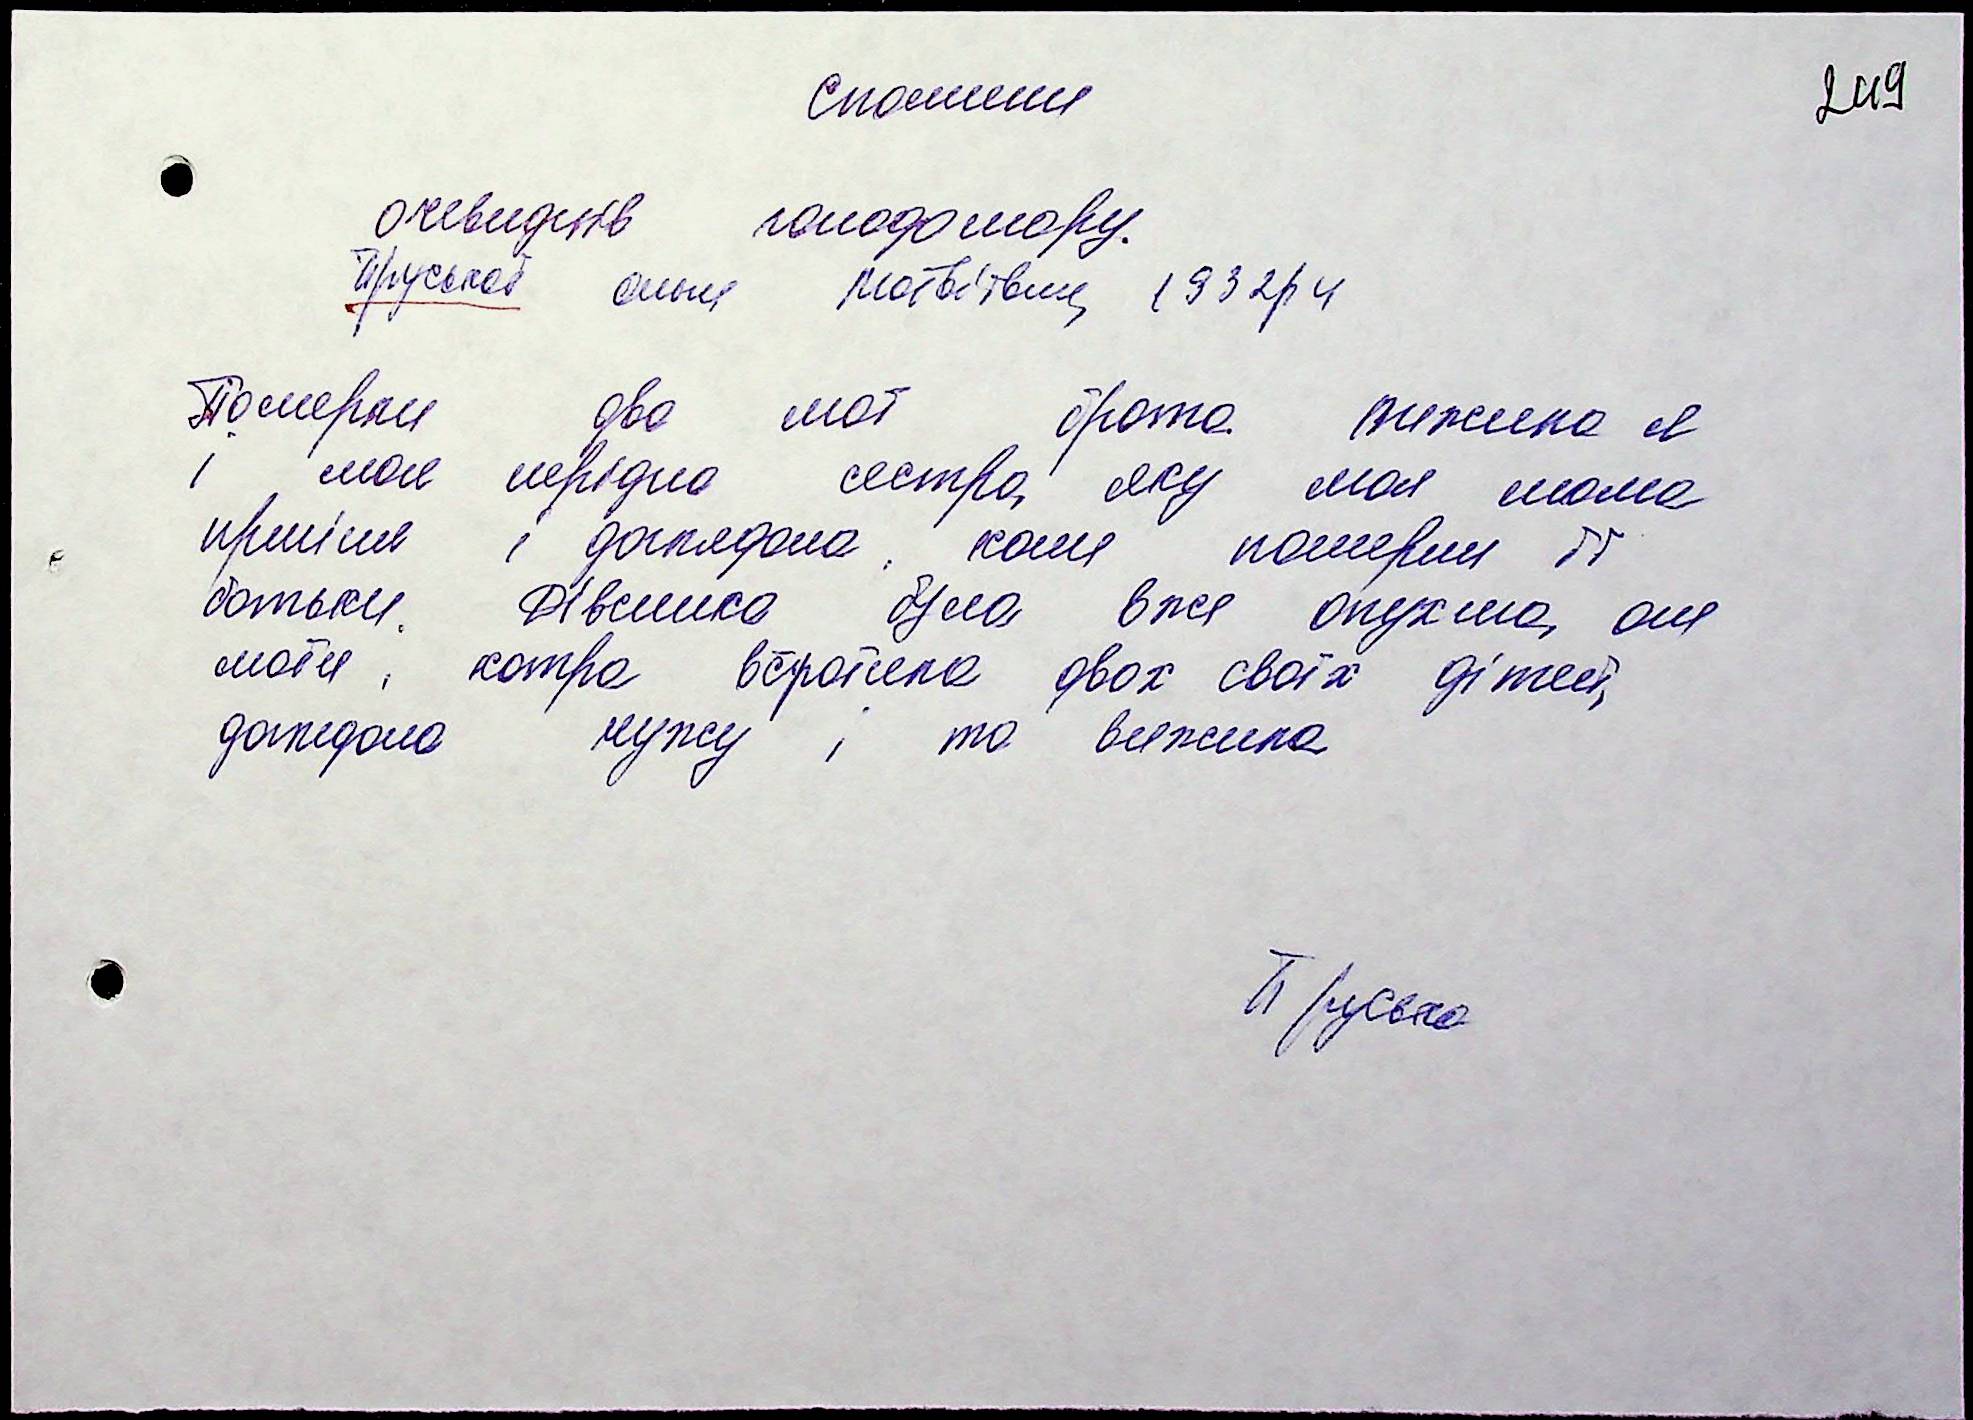 249
Спомини
очевидців голодомору.
Пруської Ольги Матвіївни, 1932р н
Померли два мої брата. Вижила я
і моя нерідна сестра, яку моя мама
приміла і доглядала, коли померли її
батьки. Дівчинка була вже опухша, але
мати, котра встратила двох своїх дітей,
доглядала чужу і та вижила
Пруська